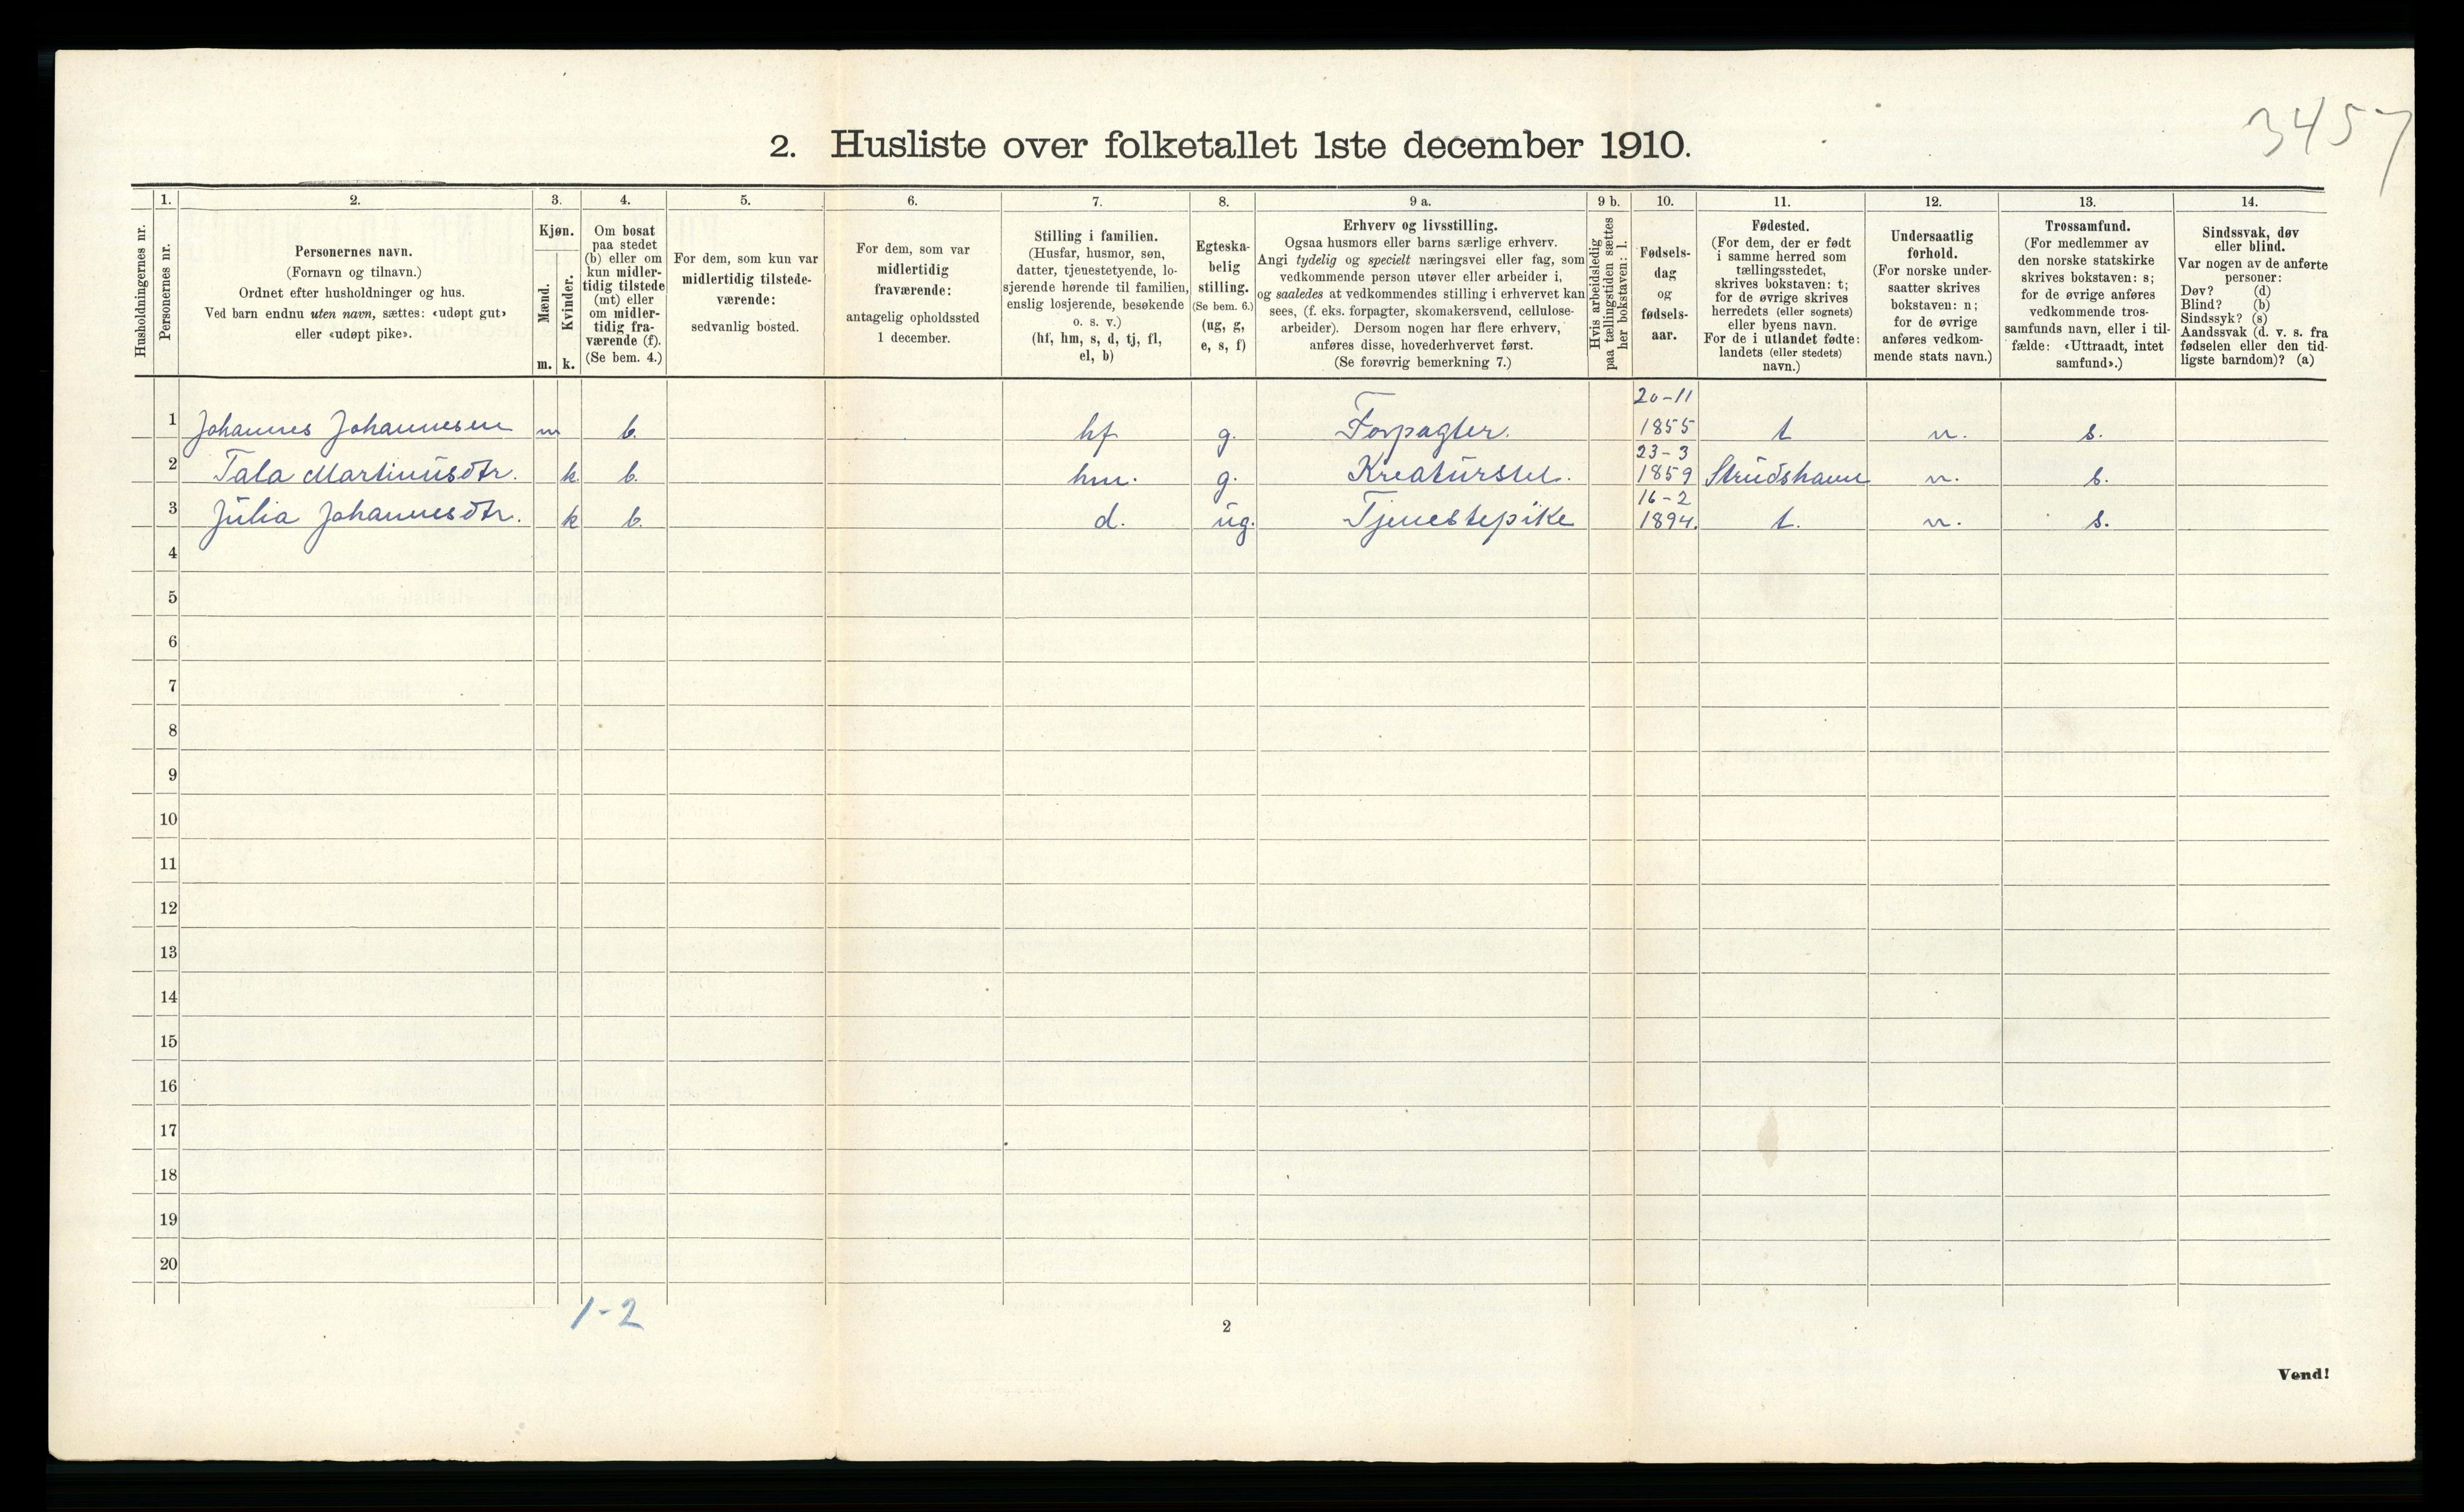 3457
2. Husliste over folketallet 1ste december 1910.
Husholdningernes nr.
1.
Personernes nr.
2.
Personernes navn.
(Fornavn og tilnavn.)
Ordnet efter husholdninger og hus.
Ved barn endnu uten navn, sættes: «udøpt gut»
eller «udøpt pike».
3.
Kjøn.
Mænd.
m.
Kvinder.
k.
4.
Om bosat
paa stedet
(b) eller om
kun midler-
tidig tilstede
(mt) eller
om midler-
tidig fra-
værende (f).
(Se bem. 4.)
5.
For dem, som kun var
midlertidig tilstede-
værende:
sedvanlig bosted.
6.
For dem, som var
midlertidig
fraværende:
antagelig opholdssted
1 december.
7.
Stilling i familien.
(Husfar, husmor, søn,
datter, tjenestetyende, lo-
sjerende hørende til familien,
enslig losjerende, besøkende
o. s. v.)
(hf, hm, s, d, tj, fl,
el, b)
8.
Egteska-
belig
stilling.
(Se bem. 6.)
(ug, g,
e, s, f)
9 a.
Erhverv og livsstilling.
Ogsaa husmors eller barns særlige erhverv.
Angi tydelig og specielt næringsvei eller fag, som
vedkommende person utøver eller arbeider i,
og saaledes at vedkommendes stilling i erhvervet kan
sees, (f. eks. forpagter, skomakersvend, cellulose-
arbeider). Dersom nogen har flere erhverv,
anføres disse, hovederhvervet først.
(Se forøvrig bemerkning 7.)
9 b.
Hvis arbeidsledig
paa tællingstiden sættes
her bokstaven: l.
10.
Fødsels-
dag
og
fødsels-
aar.
11.
Fødested.
(For dem, der er født
i samme herred som
tællingsstedet,
skrives bokstaven: t;
for de øvrige skrives
herredets (eller sognets)
eller byens navn.
For de i utlandet fødte:
landets (eller stedets)
navn.)
12.
Undersaatlig
forhold.
(For norske under-
saatter skrives
bokstaven: n;
for de øvrige
anføres vedkom-
mende stats navn.)
13.
Trossamfund.
(For medlemmer av
den norske statskirke
skrives bokstaven: s;
for de øvrige anføres
vedkommende tros-
samfunds navn, eller i til-
fælde: «Uttraadt, intet
samfund».)
14.
Sindssvak, døv
eller blind.
Var nogen av de anførte
personer:
Døv? (d)
Blind? (b)
Sindssyk? (s)
Aandssvak (d. v. s. fra
fødselen eller den tid-
ligste barndom)? (a)
1 Johannes Johannesen m b. hf g. Forpagter. 20-11 1855 t n. s.
2 Tala Martinusdtr. k. b. hm. g. Kreaturstel. 23-3 1859 Strudshavn n. s.
3 Julia Johannesdtr. k b. d. ug. Tjenestepike 16-2 1894. t. n. s.
4
5
6
7
8
9
10
11
12
13
14
15
16
17
18
19
20
1-2
2
Vend!